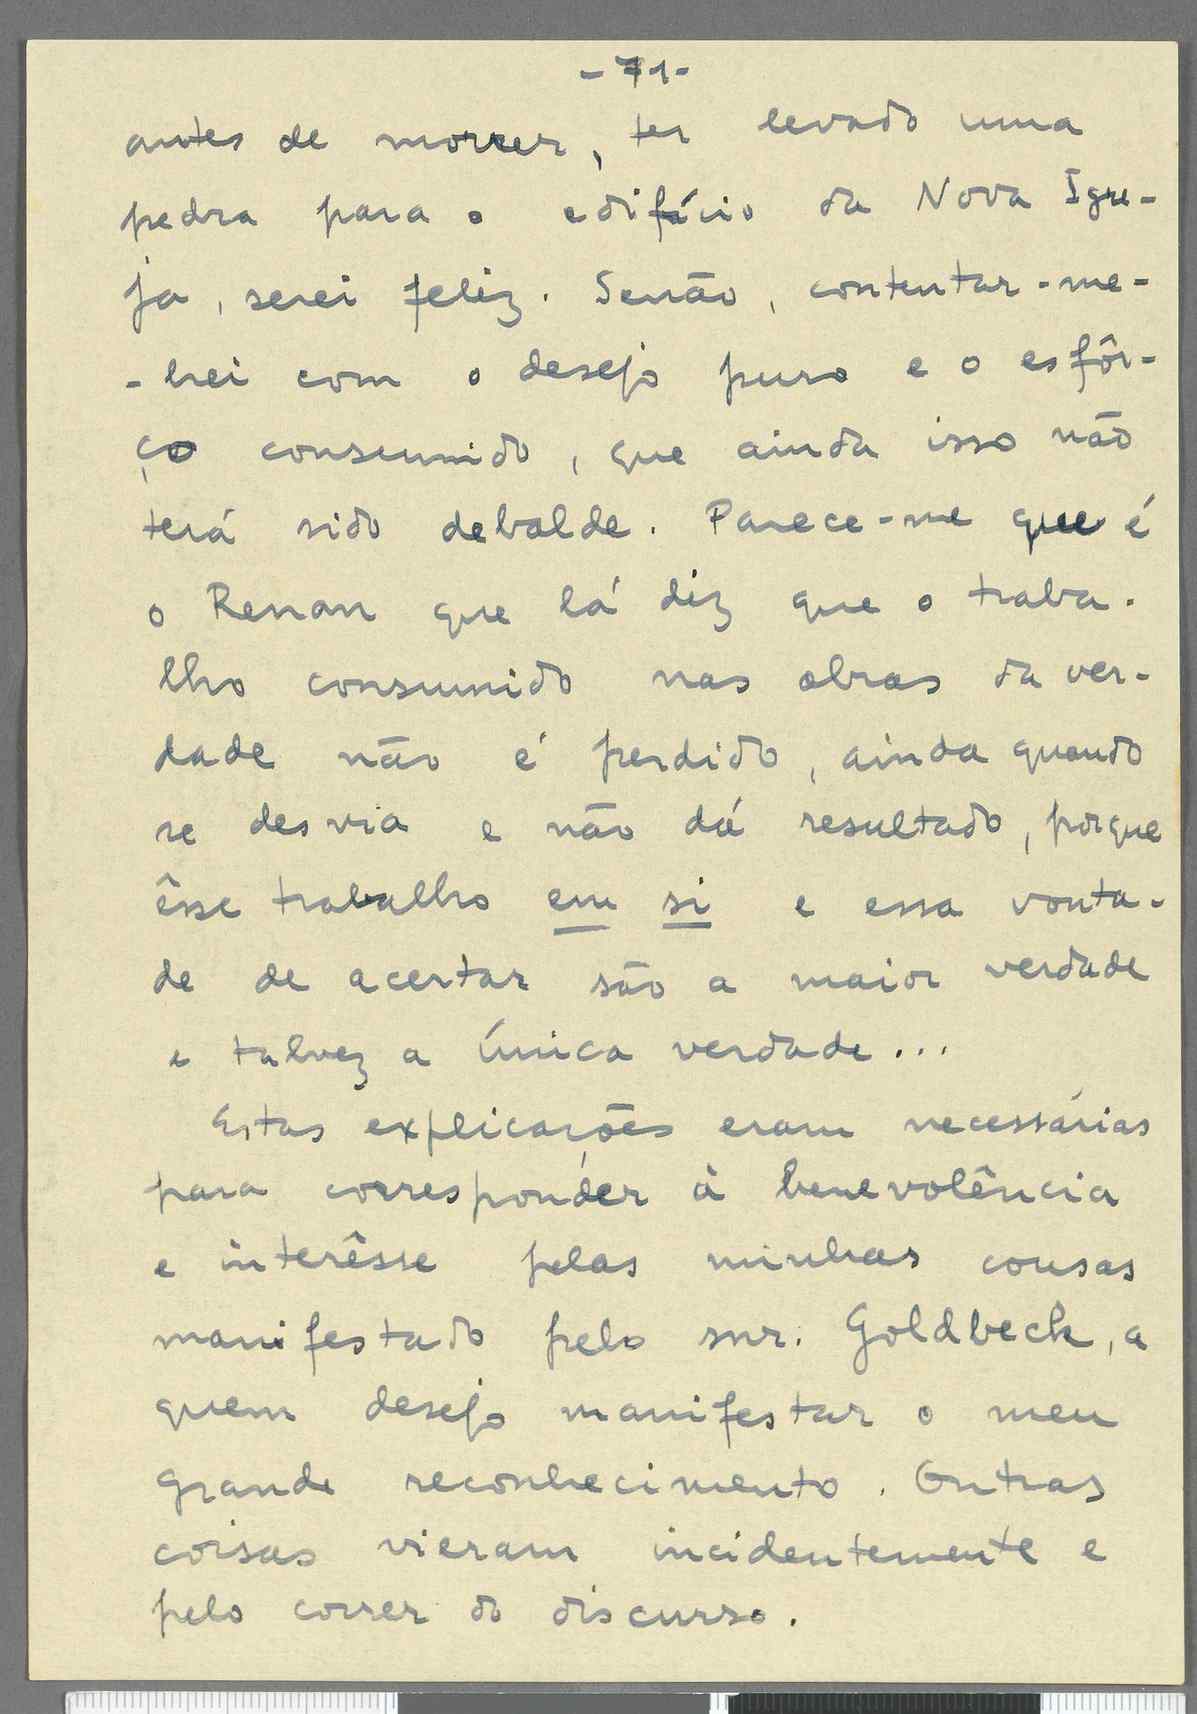 -71-
antes de morrer, ter levado uma
pedra para o edifício da Nova Igre-
ja, serei feliz. Senão, contentar-me-
-hei com o desejo puro e o esfôr-
ço consumido, que ainda isso não
terá sido debalde. Parece-me que é
o Renan que lá diz que o traba-
lho consumido nas obras da ver-
dade não é perdido, ainda quando
se desvia e não dá resultado, porque
êsse trabalho em si e essa vonta-
de de acertar são a maior verdade
e talvez a única verdade...
Estas explicações eram necessárias
para corresponder à benevolência
e interêsse pelas minhas cousas
manifestado pelo snr. Goldbeck, a
quem desejo manifestar o meu
grande reconhecimento. Outras
coisas vieram incidentemente e
pelo correr do discurso.